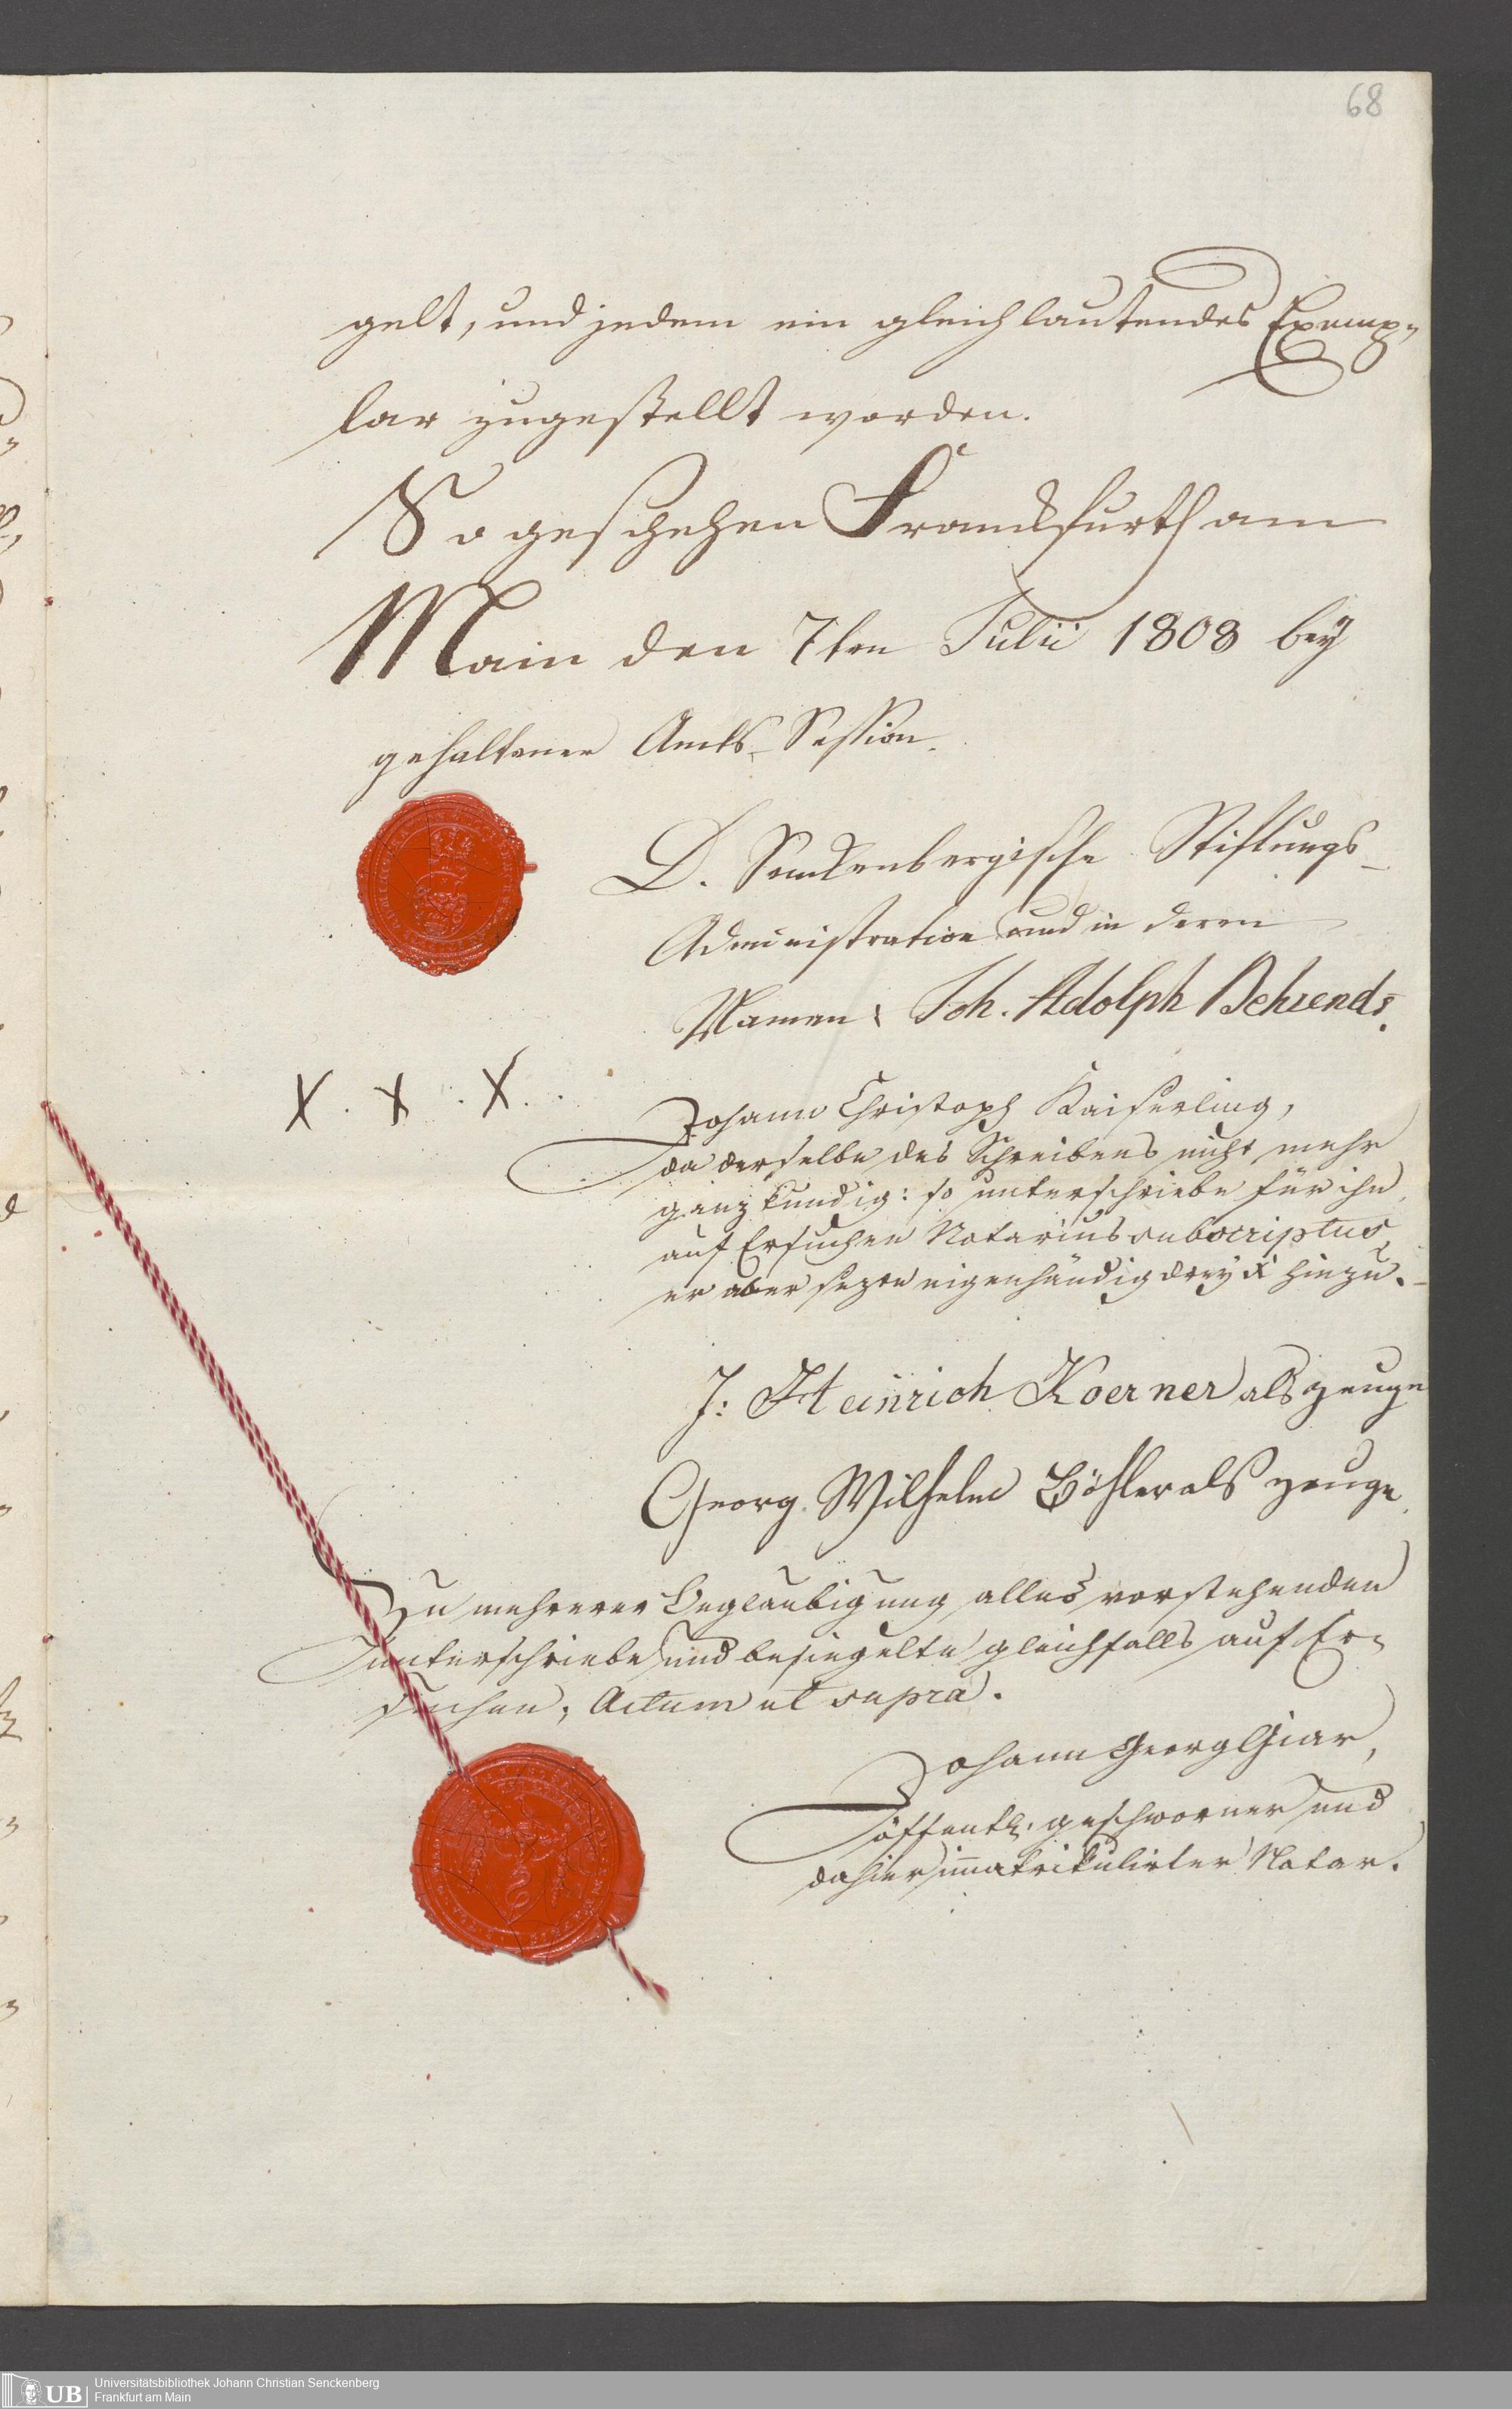 68
gelt, und jedem ein gleich lautendes Exemp-
lar zugestellt worden.
So geschehen Franckfurth am
Main den 7ten Julii 1808 bey
gehaltener Amts-Session.
D. Senckenbergische Stiftungs-
Administration und in deren
Namen: Joh. Adolph Behrends.
X. X. X.
Johann Christoph Kaiserling,
da derselbe des Schreibens nicht mehr
ganz kundig: so unterschriebe für ihn
auf Ersuchen Notarius subscriptus,
er aber sezte eigenhändig drey X hinzu.
J: Heinrich Koerner als zeuge
Georg Wilhelm Böhler als zeuge
Zu mehrerer Beglaubigung alles vorstehenden
unterschriebe und besiegelte gleichfalls auf Er-
suchen, Actum ut supra.
Johann Georg Giar,
öffentl. geschworner und
dahier immatrikulirter Notar.
UB
Universitätsbibliothek Johann Christian Senckenberg
Frankfurt am Main